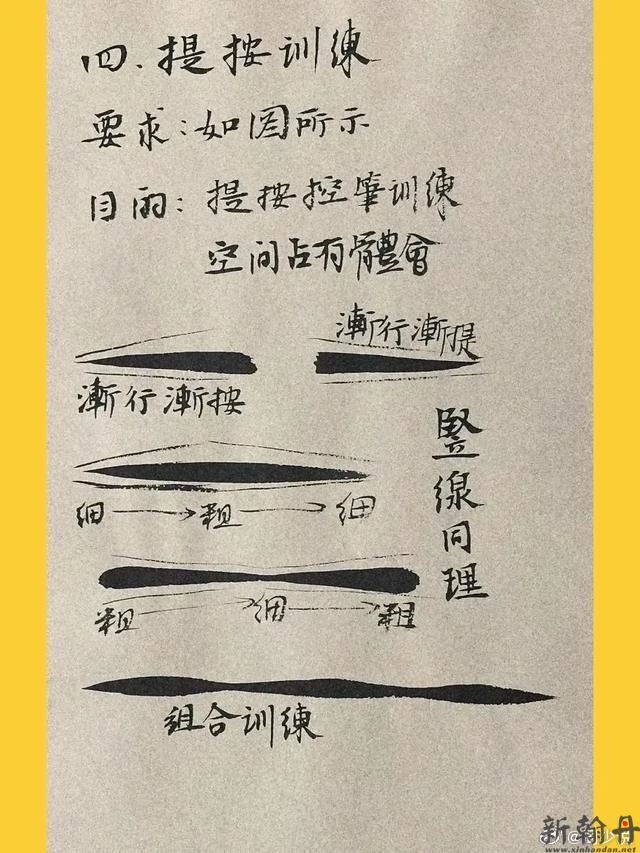 四.提按训練
要求:如图所示
目的:提按控筆训練
空间占有體會
漸行漸提
漸行漸按
竪線同理
细→粗→细
粗→细→粗
组合训練
新翰丹
www.xinhandan.net